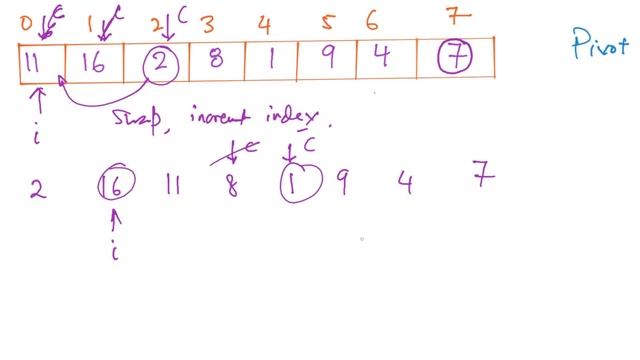 0 c 1 c 2 c 3 4 5 6 7
11 16 2 8 1 9 4 7 Pivot
i swap, increment index.
c c
2 16 11 8 1 9 4 7
i